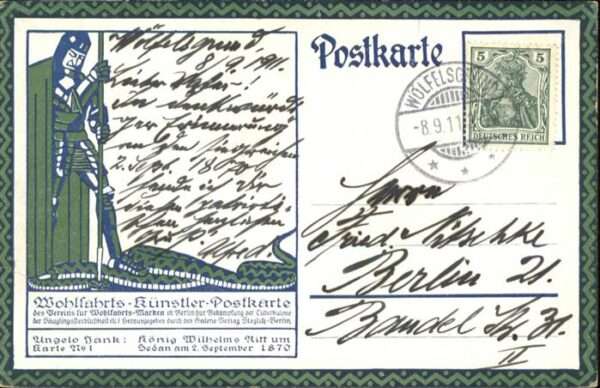 Wölfelsgrund,
8/9 1911.
Lieber
In denkwürdi-
ger Erinnerung
an den siegreichen
2. Sept. 1870
sende ich Dir
diesen patrioti-
schen herzlichen
Gruß. Alfred.
Postkarte
5 5
DEUTSCHES REICH
WÖLFELSGRUND
-8.9.11
Herrn
Fried. Nitschke
Berlin 21.
Bandel Str. 31.
II
Wohlfahrts-Künstler-Postkarte
des Vereins für Wohlfahrts-Marken in Berlin (zur Bekämpfung der Tuberkulose
der Säuglingssterblichkeit etc.) Herausgegeben durch den Verlag Steglitz-Berlin.
Angelo Jank: König Wilhelms Ritt um
Karte No 1 Sedan am 2. September 1870